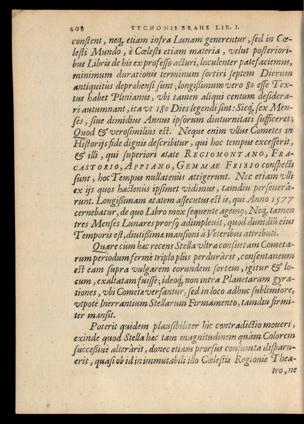 408 TYCHONIS BRAHE LIB. I.
constent, neq, etiam infra Lunam generentur, sed in Cœ-
lesti Mundo, è Cœlesti etiam materia, velut posteriori-
bus Libris de his ex professo acturi, luculenter patefaciemus,
minimum durationis terminum sortiri septem Dierum
antiquitùs deprehensi sunt; longissimum vero 80 esse Tex-
tus habet Plinianus, vbi tamen aliqui centum desidera-
ri autumnant, ita vt 180 Dies legendi sint: Sicq, sex Men-
ses, siue dimidius Annus ipsorum diuturnitati sufficeret;
Quod & verosimilius est. Neque enim vllus Cometes in
Historijs fide dignis describitur, qui hoc tempus excesserit,
& illi, qui superiori ætate REGIOMONTANO, FRA-
CASTORIO, APPIANO, GEMMAE FRISIO conspecti
sunt, hoc Tempus nullatenus attigerunt. Nec etiam vlli
ex ijs quos hactenus ipsimet vidimus, tamdiu perseuerâ-
runt. Longissimam ætatem assecutus est is, qui Anno 1577
cernebatur, de quo Libro mox sequente agemus; Neq, tamen
tres Menses Lunares prorsq adimpleuit, quod dimidiũ eius
Temporis est, diutissimæ mansioni à Veteribus attributi.
Quare cùm hæc recens Stella vltra consuetam Cometa-
rum periodum fermè triplo plùs perdurârit, consentaneum
est eam supra vulgarem eorundem sortem, igitur & lo-
cum, exaltatam fuisse; ideoq, non intra Planetarum gyra-
tiones, vbi Cometæ versantur, sed in loco adhuc sublimiore,
vtpotè Inerrantium Stellarum Firmamento, tamdiu firmi-
ter mansit.
Poterit quidem plausibiliter hîc contradictio moueri,
exinde quod Stella hæc tam magnitudinem quàm Colorem
successiuè alterârit, donec etiam prorsus consumta disparu-
erit, quasi ob id in immutabili illo Cœlestis Regionis Thea-
tro, ne